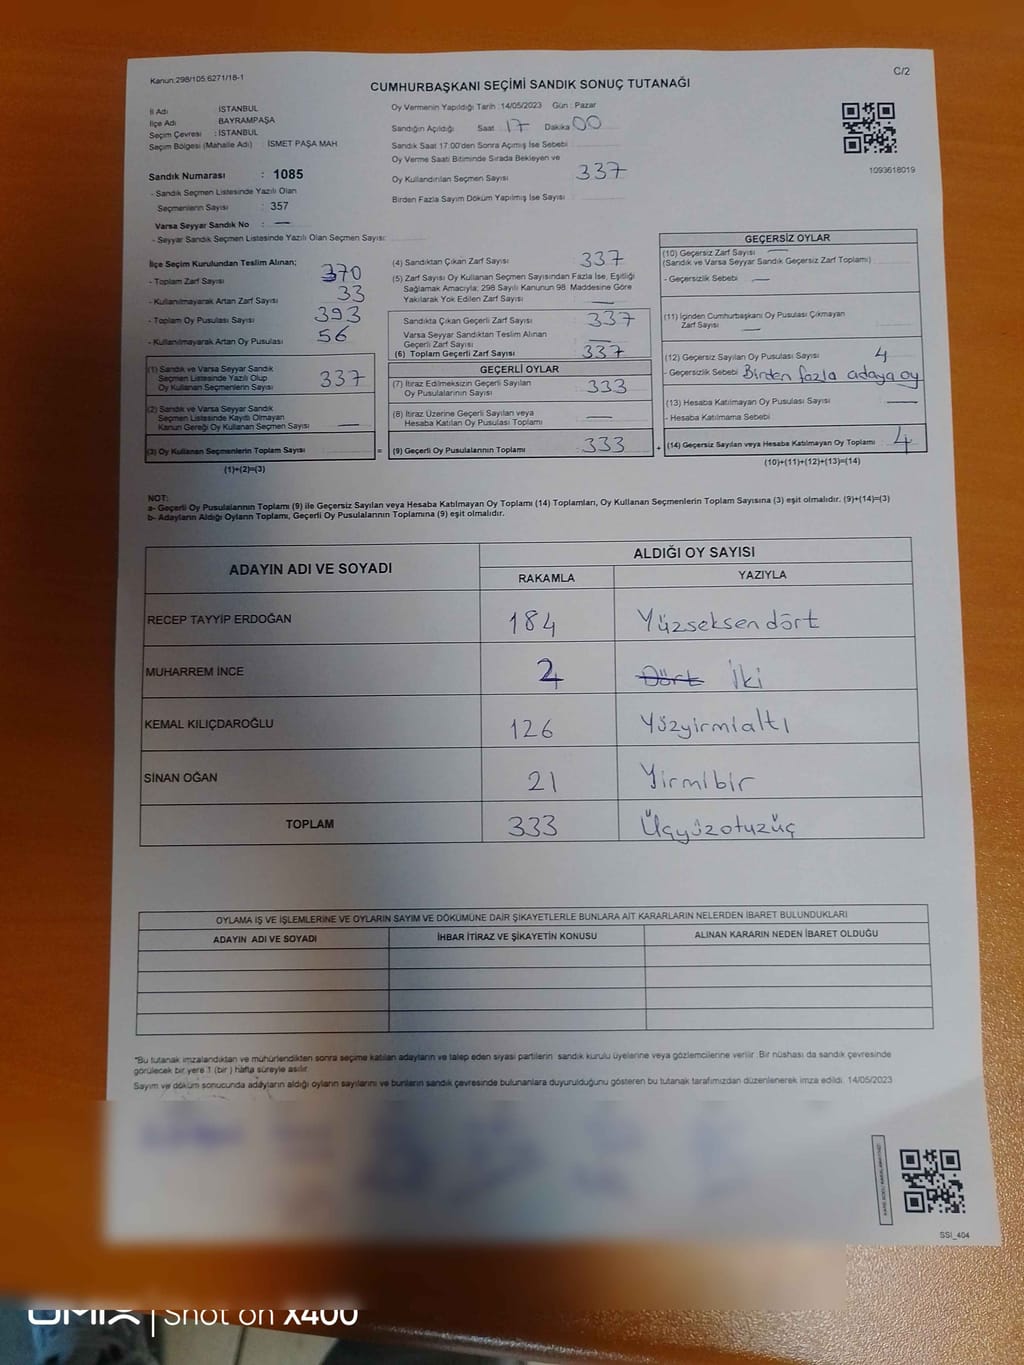 Kanun:298/105:6271/18-1
C/2
CUMHURBAŞKANI SEÇİMİ SANDIK SONUÇ TUTANAĞI
İl Adı : İSTANBUL
İlçe Adı : BAYRAMPAŞA
Seçim Çevresi : İSTANBUL
Seçim Bölgesi (Mahalle Adı) İSMET PAŞA MAH
Sandık Numarası : 1085
- Sandık Seçmen Listesinde Yazılı Olan
Seçmenlerin Sayısı : 357
Varsa Seyyar Sandık No : —
- Seyyar Sandık Seçmen Listesinde Yazılı Olan Seçmen Sayısı:
Oy Vermenin Yapıldığı Tarih :14/05/2023 Gün : Pazar
Sandığın Açıldığı Saat 17 Dakika 00
Sandık Saat 17.00'den Sonra Açımış İse Sebebi
Oy Verme Saati Bitiminde Sırada Bekleyen ve
Oy Kullandırılan Seçmen Sayısı 337
Birden Fazla Sayım Döküm Yapılmış İse Sayısı
1093618019
İlçe Seçim Kurulundan Teslim Alınan;
- Toplam Zarf Sayısı 370
- Kullanılmayarak Artan Zarf Sayısı 33
- Toplam Oy Pusulası Sayısı 393
- Kullanılmayarak Artan Oy Pusulası 56
(1) Sandık ve Varsa Seyyar Sandık
Seçmen Listesinde Yazılı Olup
Oy Kullanan Seçmenlerin Sayısı 337
(2) Sandık ve Varsa Seyyar Sandık
Seçmen Listesinde Kayıtlı Olmayan
Kanun Gereği Oy Kullanan Seçmen Sayısı —
(3) Oy Kullanan Seçmenlerin Toplam Sayısı =
(1)+(2)=(3)
(4) Sandıktan Çıkan Zarf Sayısı 337
(5) Zarf Sayısı Oy Kullanan Seçmen Sayısından Fazla İse, Eşitliği
Sağlamak Amacıyla; 298 Sayılı Kanunun 98. Maddesine Göre
Yakılarak Yok Edilen Zarf Sayısı —
Sandıkta Çıkan Geçerli Zarf Sayısı : 337
Varsa Seyyar Sandıktan Teslim Alınan
Geçerli Zarf Sayısı —
(6) Toplam Geçerli Zarf Sayısı : 337
GEÇERLİ OYLAR
(7) İtiraz Edilmeksizin Geçerli Sayılan
Oy Pusulalarının Sayısı : 333
(8) İtiraz Üzerine Geçerli Sayılan veya
Hesaba Katılan Oy Pusulası Toplamı —
(9) Geçerli Oy Pusulalarının Toplamı : 333 +
GEÇERSİZ OYLAR
(10) Geçersiz Zarf Sayısı —
(Sandık ve Varsa Seyyar Sandık Geçersiz Zarf Toplamı)
- Geçersizlik Sebebi : —
(11) İçinden Cumhurbaşkanı Oy Pusulası Çıkmayan
Zarf Sayısı —
(12) Geçersiz Sayılan Oy Pusulası Sayısı 4
- Geçersizlik Sebebi Birden fazla adaya oy
(13) Hesaba Katılmayan Oy Pusulası Sayısı —
- Hesaba Katılmama Sebebi
(14) Geçersiz Sayılan veya Hesaba Katılmayan Oy Toplamı 4
(10)+(11)+(12)+(13)=(14)
NOT:
a- Geçerli Oy Pusulalarının Toplamı (9) ile Geçersiz Sayılan veya Hesaba Katılmayan Oy Toplamı (14) Toplamları, Oy Kullanan Seçmenlerin Toplam Sayısına (3) eşit olmalıdır. (9)+(14)=(3)
b- Adayların Aldığı Oyların Toplamı, Geçerli Oy Pusulalarının Toplamına (9) eşit olmalıdır.
ADAYIN ADI VE SOYADI ALDIĞI OY SAYISI
RAKAMLA YAZIYLA
RECEP TAYYİP ERDOĞAN 184 Yüzseksendört
MUHARREM İNCE 2 Dört İki
KEMAL KILIÇDAROĞLU 126 Yüzyirmialtı
SİNAN OĞAN 21 Yirmibir
TOPLAM 333 Üçyüzotuzüç
OYLAMA İŞ VE İŞLEMLERİNE VE OYLARIN SAYIM VE DÖKÜMÜNE DAİR ŞİKAYETLERLE BUNLARA AİT KARARLARIN NELERDEN İBARET BULUNDUKLARI
ADAYIN ADI VE SOYADI İHBAR İTİRAZ VE ŞİKAYETİN KONUSU ALINAN KARARIN NEDEN İBARET OLDUĞU
"Bu tutanak imzalandıktan ve mühürlendikten sonra seçime katılan adayların ve talep eden siyasi partilerin sandık kurulu üyelerine veya gözlemcilerine verilir. Bir nüshası da sandık çevresinde
görülecek bir yere 1 (bir) hafta süreyle asılır.
Sayım ve döküm sonucunda adayların aldığı oyların sayılarını ve bunların sandık çevresinde bulunanlara duyurulduğunu gösteren bu tutanak tarafımızdan düzenlenerek imza edildi. 14/05/2023
SSI_404
UMIX | Shot on X400